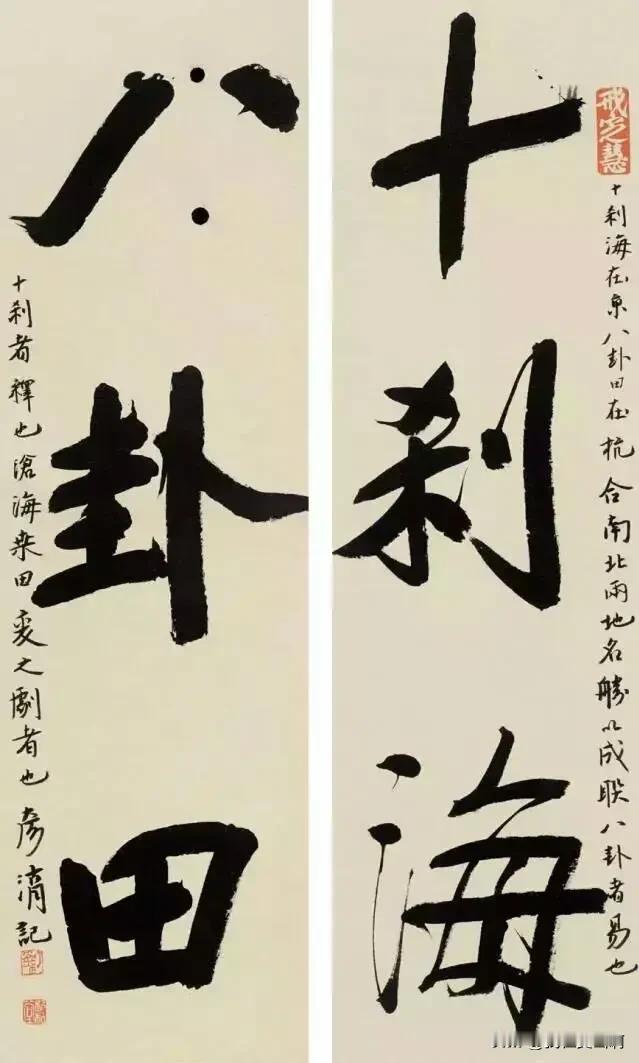 十刹海
戒定慧
十刹海在京八卦田在杭合南北兩地名勝以成联八卦者易也
八卦田
十刹者釋也滄海桒田变之劇者也彦湑記